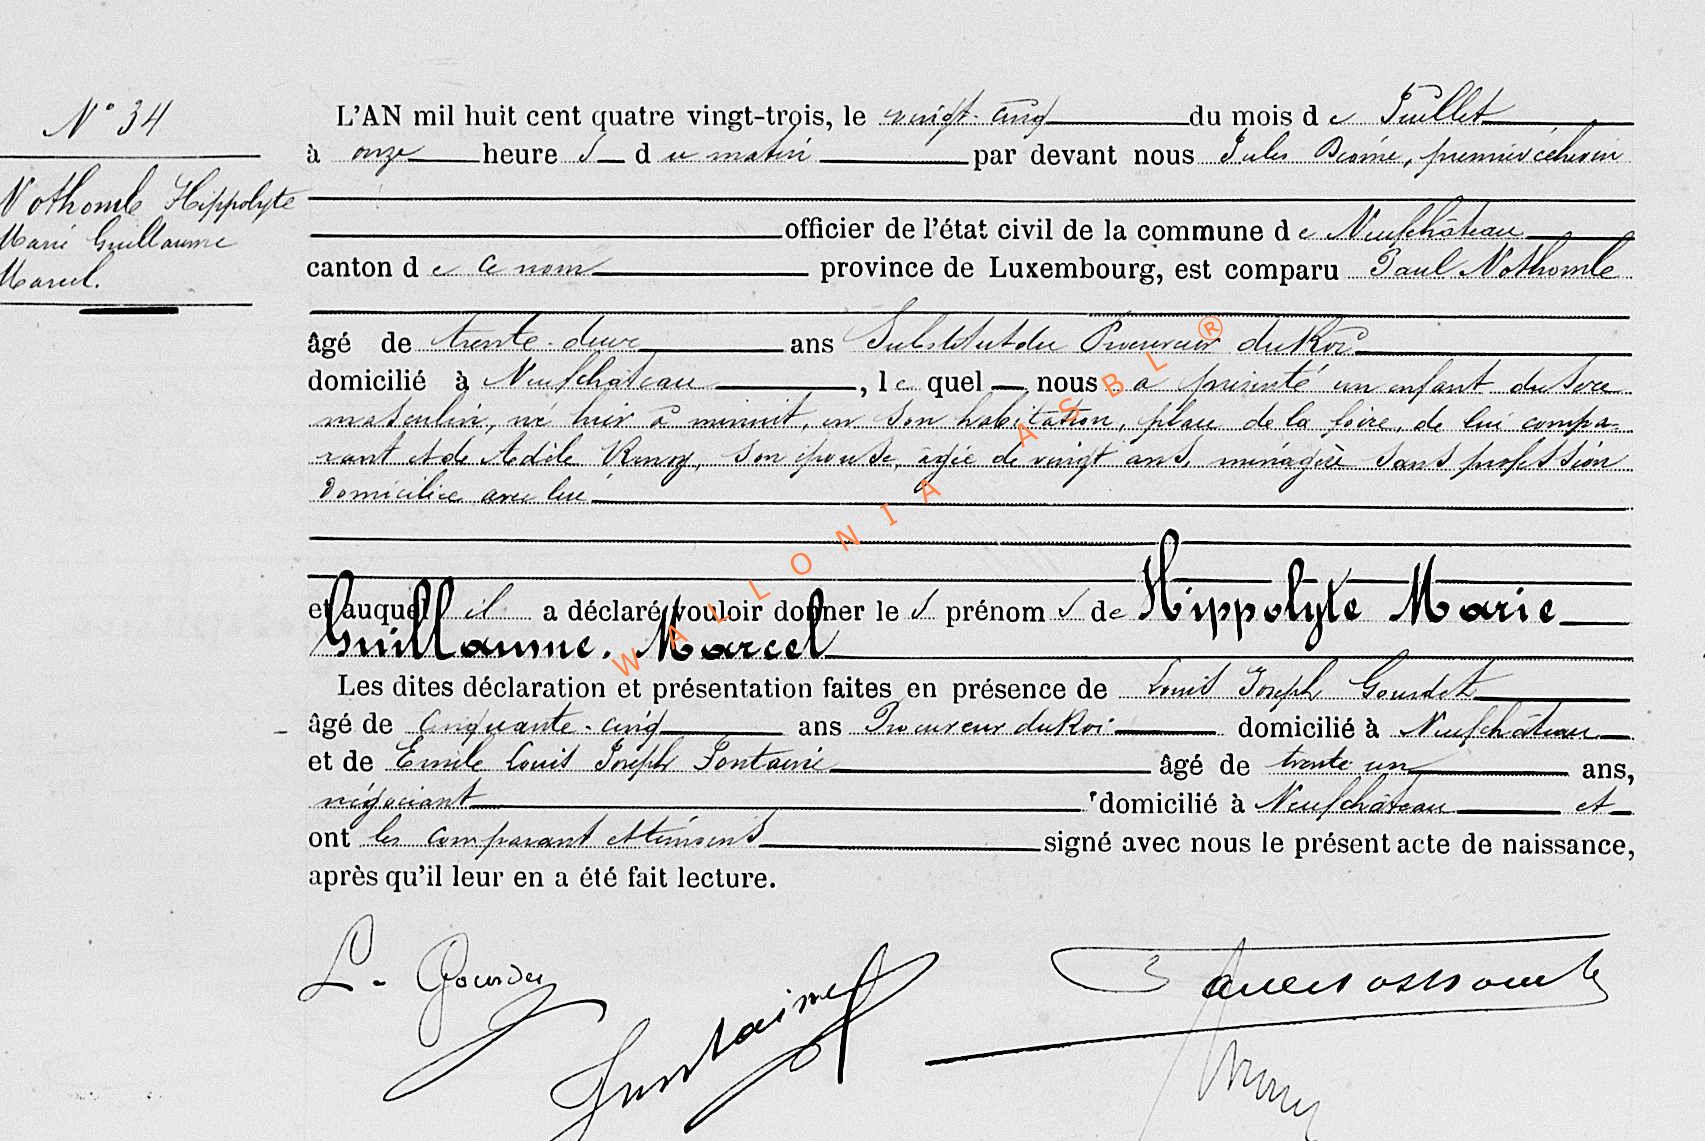 N° 34
Nothomb Hippolyte
Marie Guillaume
Marcel.
L'AN mil huit cent quatre vingt-trois, le vingt-cinq du mois de Juillet
à onze heures du matin par devant nous Jules premier échevin
officier de l'état civil de la commune de Neufchâteau
canton de ce nom province de Luxembourg, est comparu Paul Nothomb
âgé de trente-deux ans Substitut du Procureur du Roi
domicilié à Neufchâteau, lequel nous a présenté un enfant du sexe
masculin, né hier à minuit, en son habitation, place de la foire, de lui compa-
rant et de Adèle son épouse, âgée de vingt ans, ménagère sans profession
domiciliée avec lui
et auquel il a déclaré vouloir donner les prénoms de Hippolyte Marie
Guillaume. Marcel
Les dites déclaration et présentation faites en présence de Louis Joseph Gourdet
âgé de cinquante-cinq ans Procureur du Roi domicilié à Neufchâteau
et de Emile Louis Joseph Fontaine âgé de trente un ans,
négociant domicilié à Neufchâteau et
ont les comparant et témoins signé avec nous le présent acte de naissance,
après qu'il leur en a été fait lecture.
L. Gourdet
Fontaine
Paul Nothomb
WALLONIA ASBL ®